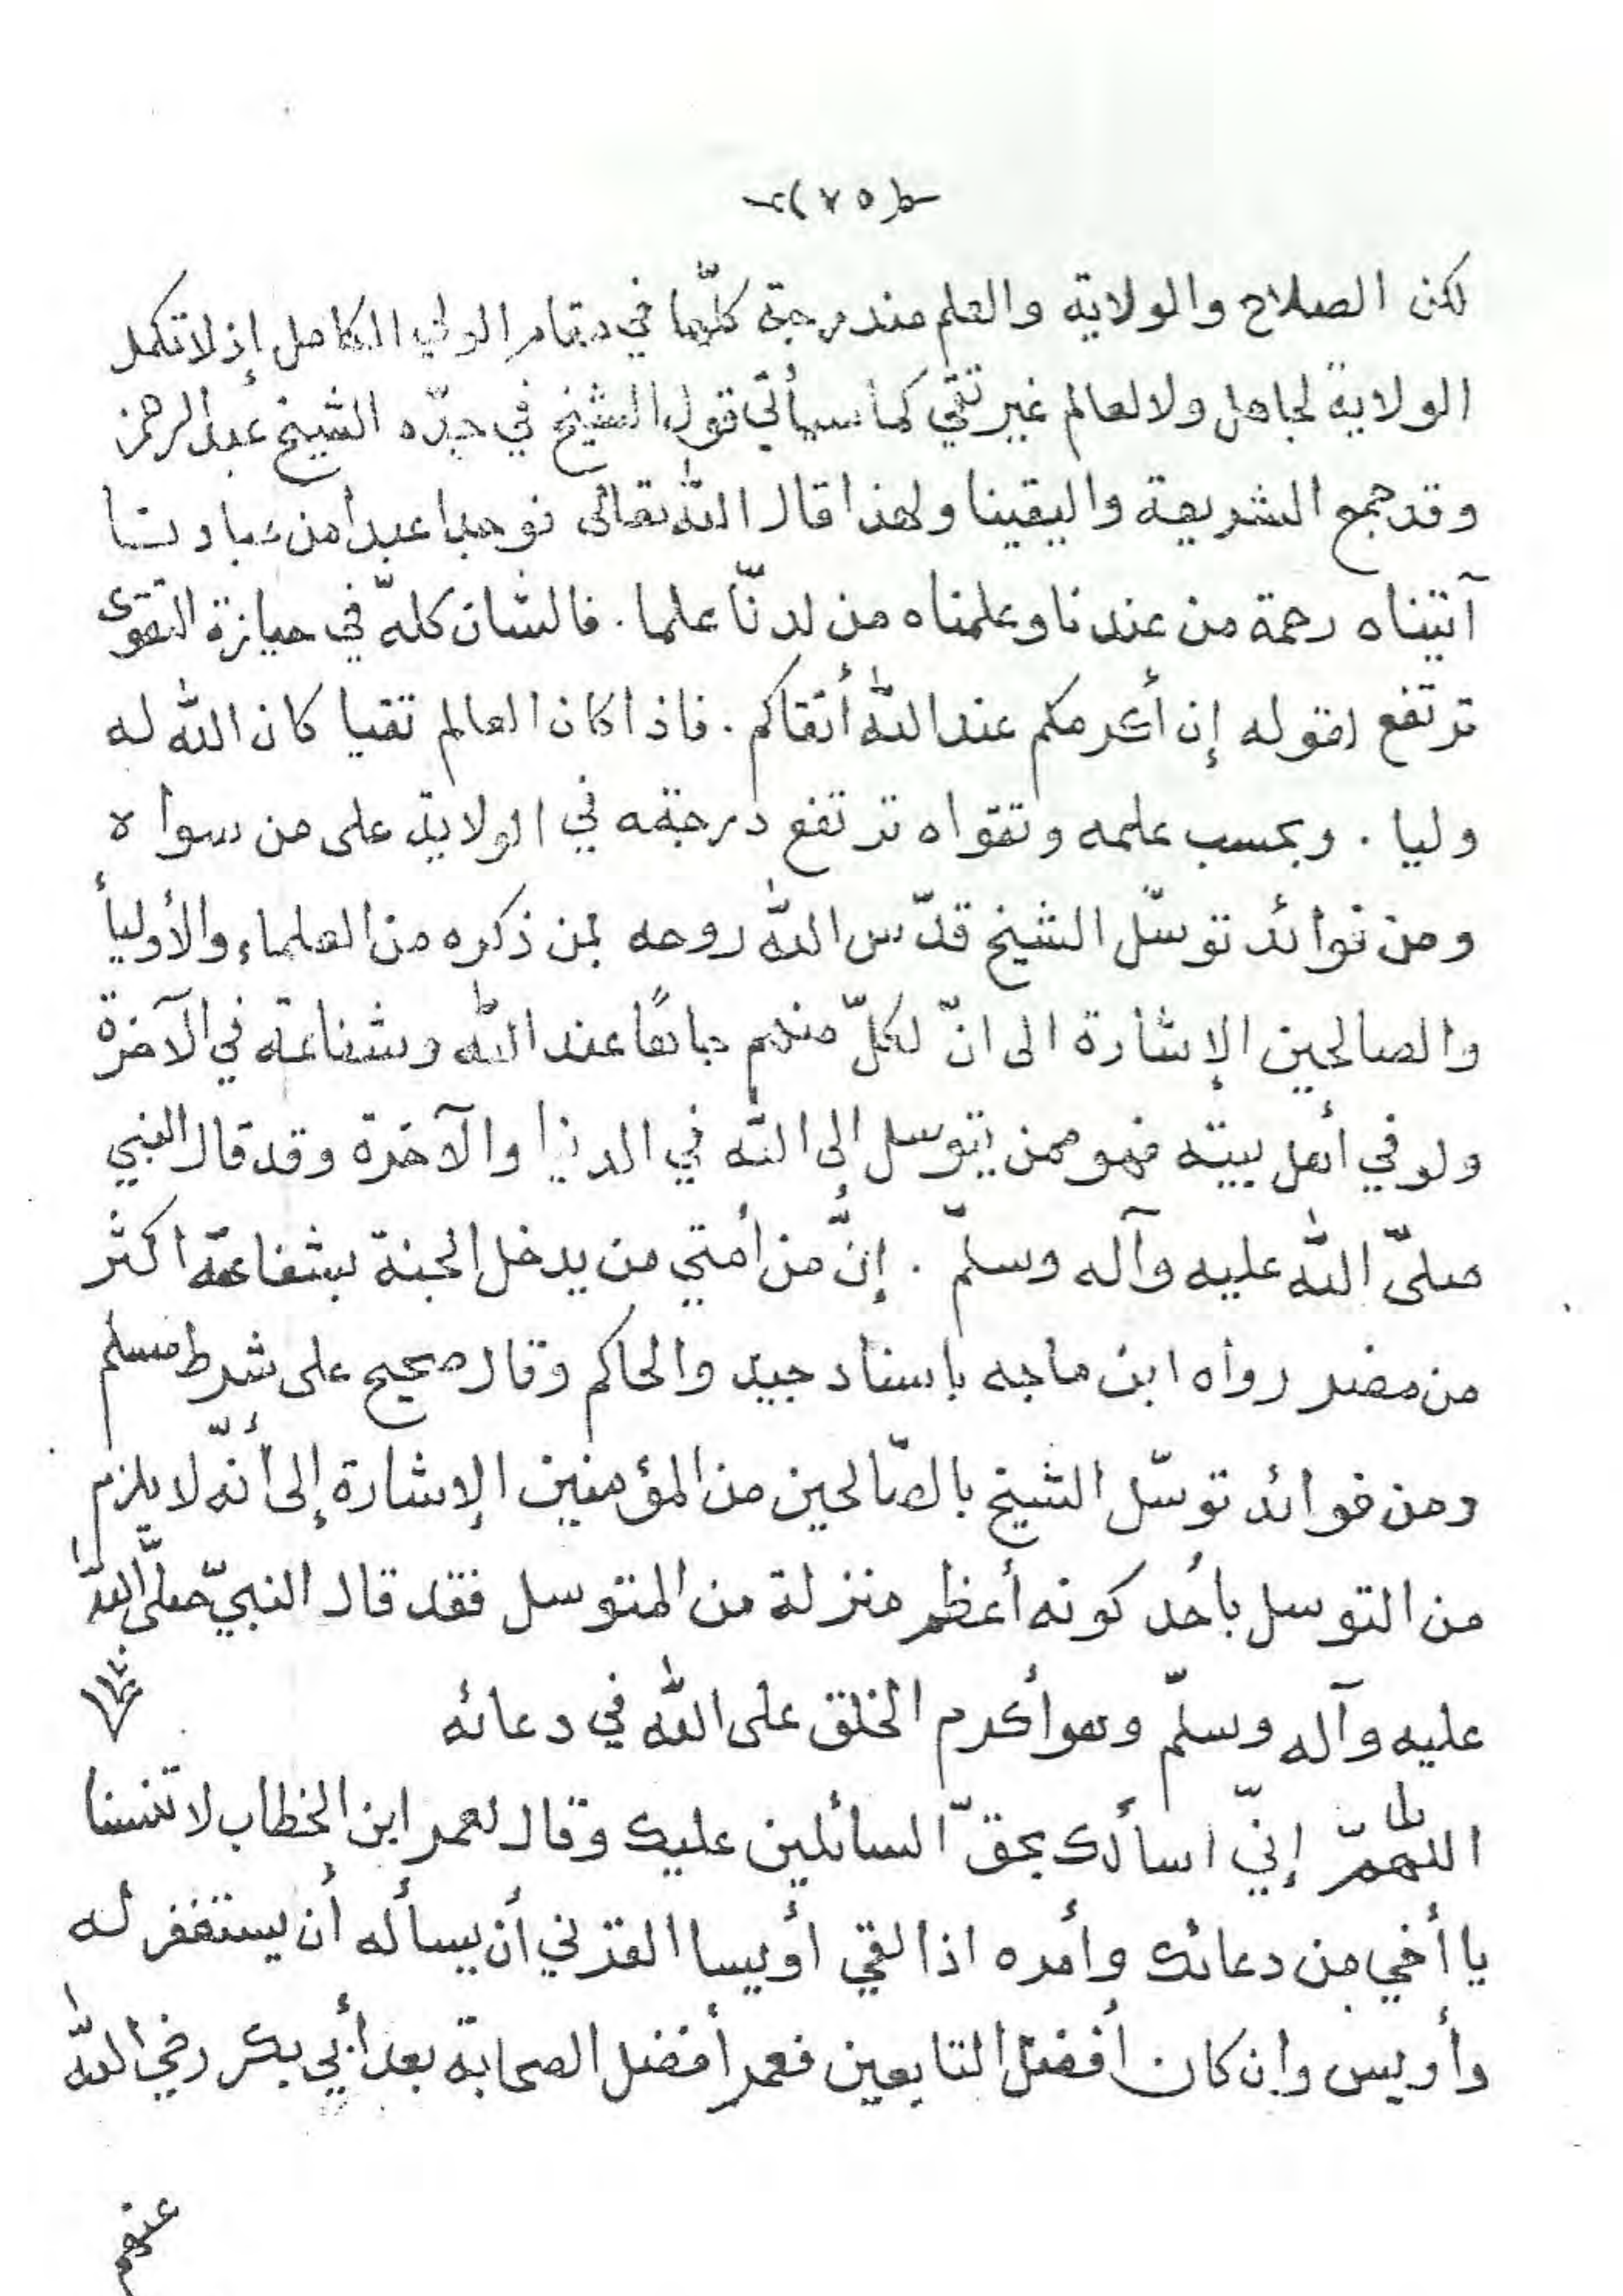 (٧٥)
لكن الصلاح والولاية والعلم مندرجة كلّها في مقام الولي الكامل إذ لا تكمل
الولاية لجاهل ولا لعالم غير تقي كما سيأتي قول الشيخ في جدّه الشيخ عبد الرحمن
وقد جمع الشريعة واليقينا ولهذا قال الله تعالى فوجدا عبدا من عبادنا
آتيناه رحمة من عندنا وعلمناه من لدنّا علما . فالشان كلّه في حيازة التقوى
ترتفع لقوله إن أكرمكم عند الله أتقاكم . فاذا كان العالم تقيا كان الله له
وليا . وبحسب علمه وتقواه ترتفع درجته في الولاية على من سواه
ومن فوائد توسّل الشيخ قدّس الله روحه بمن ذكره من العلماء والأولياء
والصالحين الإشارة الى انّ لكلّ منهم جاهًا عند الله وشفاعة في الآخرة
ولو في أهل بيته فهو ممن يتوسل إلى الله في الدنيا والآخرة وقد قال النبي
صلّى الله عليه وآله وسلّم . إنّ من أُمتي من يدخل الجنة بشفاعته اكثر
من مضر رواه ابن ماجه باسناد جيد والحاكم وقال صحيح على شرط مسلم
ومن فوائد توسّل الشيخ بالصّالحين من المؤمنين الإشارة إلى أنّه لا يلزم
من التوسل بأحد كونه أعظم منزلة من المتوسل فقد قال النبيّ صلّى الله
عليه وآله وسلّم وهو أكرم الخلق على الله في دعائه
اللّهمّ إنيّ اسألك بحقّ السائلين عليك وقال لعمر ابن الخطاب لا تنسنا
يا أخي من دعائك وأمره اذا لقي أويسا القرني أن يسأله أن يستغفر له
وأويس وإن كان أفضل التابعين فعمر أفضل الصحابة بعد أبي بكر رضي الله
عنهم